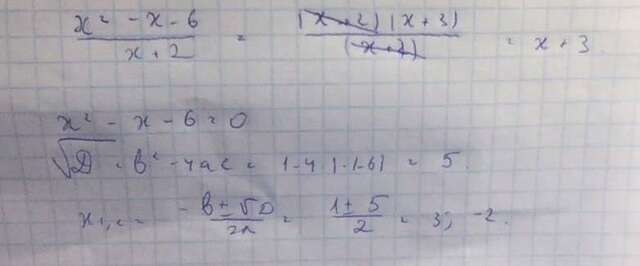 x² - x - 6 / x + 2 = (x + 2)(x + 3) / (x + 2) = x + 3.
x² - x - 6 = 0
√D = b² - 4ac = 1 - 4·1·(-6) = 5.
x₁,₂ = -b ± √D / 2a = 1 ± 5 / 2 = 3; -2.